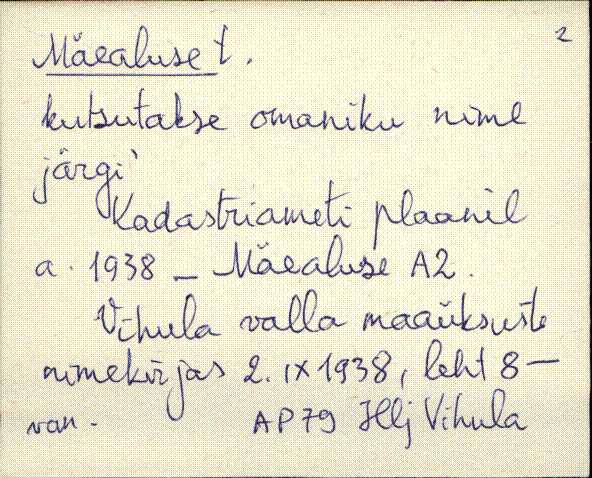 2
Mäealuse t.
kutsutakse omaniku nime
järgi
Kadastriameti plaanil
a. 1938 – Mäealuse A2.
Vihula valla maaüksuste
nimekirjas 2. IX 1938, leht 8 –
van. AP79 Hlj Vihula